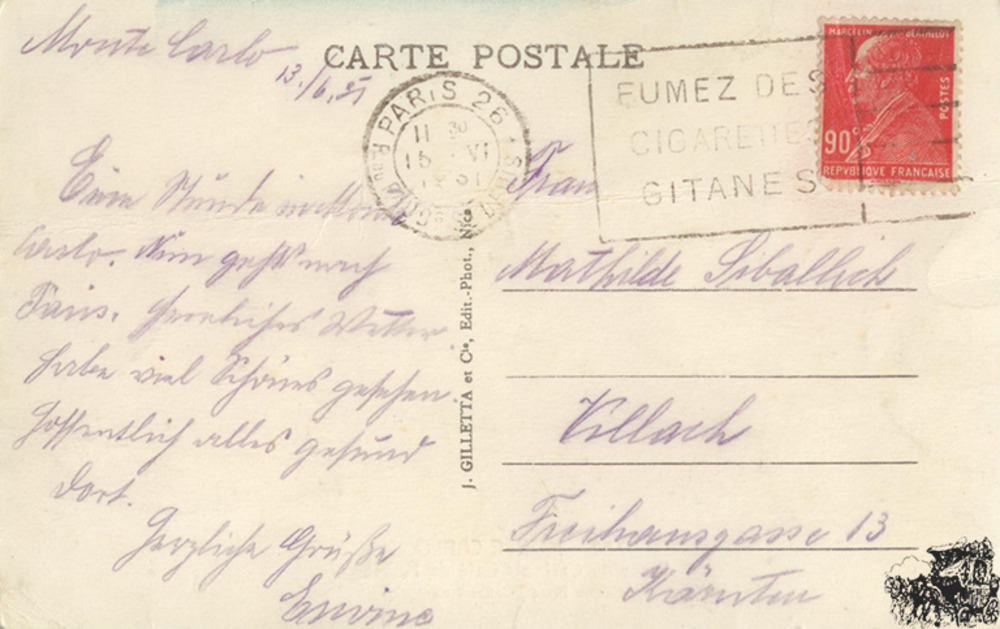 Monte Carlo
13./6.31
CARTE POSTALE
PARIS 26
11 30
15 VI
31
FUMEZ DES
CIGARETTES
GITANES
MARCELIN BERTHELOT
POSTES
90c
REPVBLIQVE FRANCAISE
Eine Stunde in Monte
Carlo. Nun geht's nach
Paris. Herrliches Wetter
habe viel Schönes gesehen.
Hoffentlich alles gesund
dort.
Herzliche Grüße
J. GILLETTA et Cie, Edit.-Phot., Nice
Frau
Mathilde
Villach
Freihausgasse 13
Kärnten